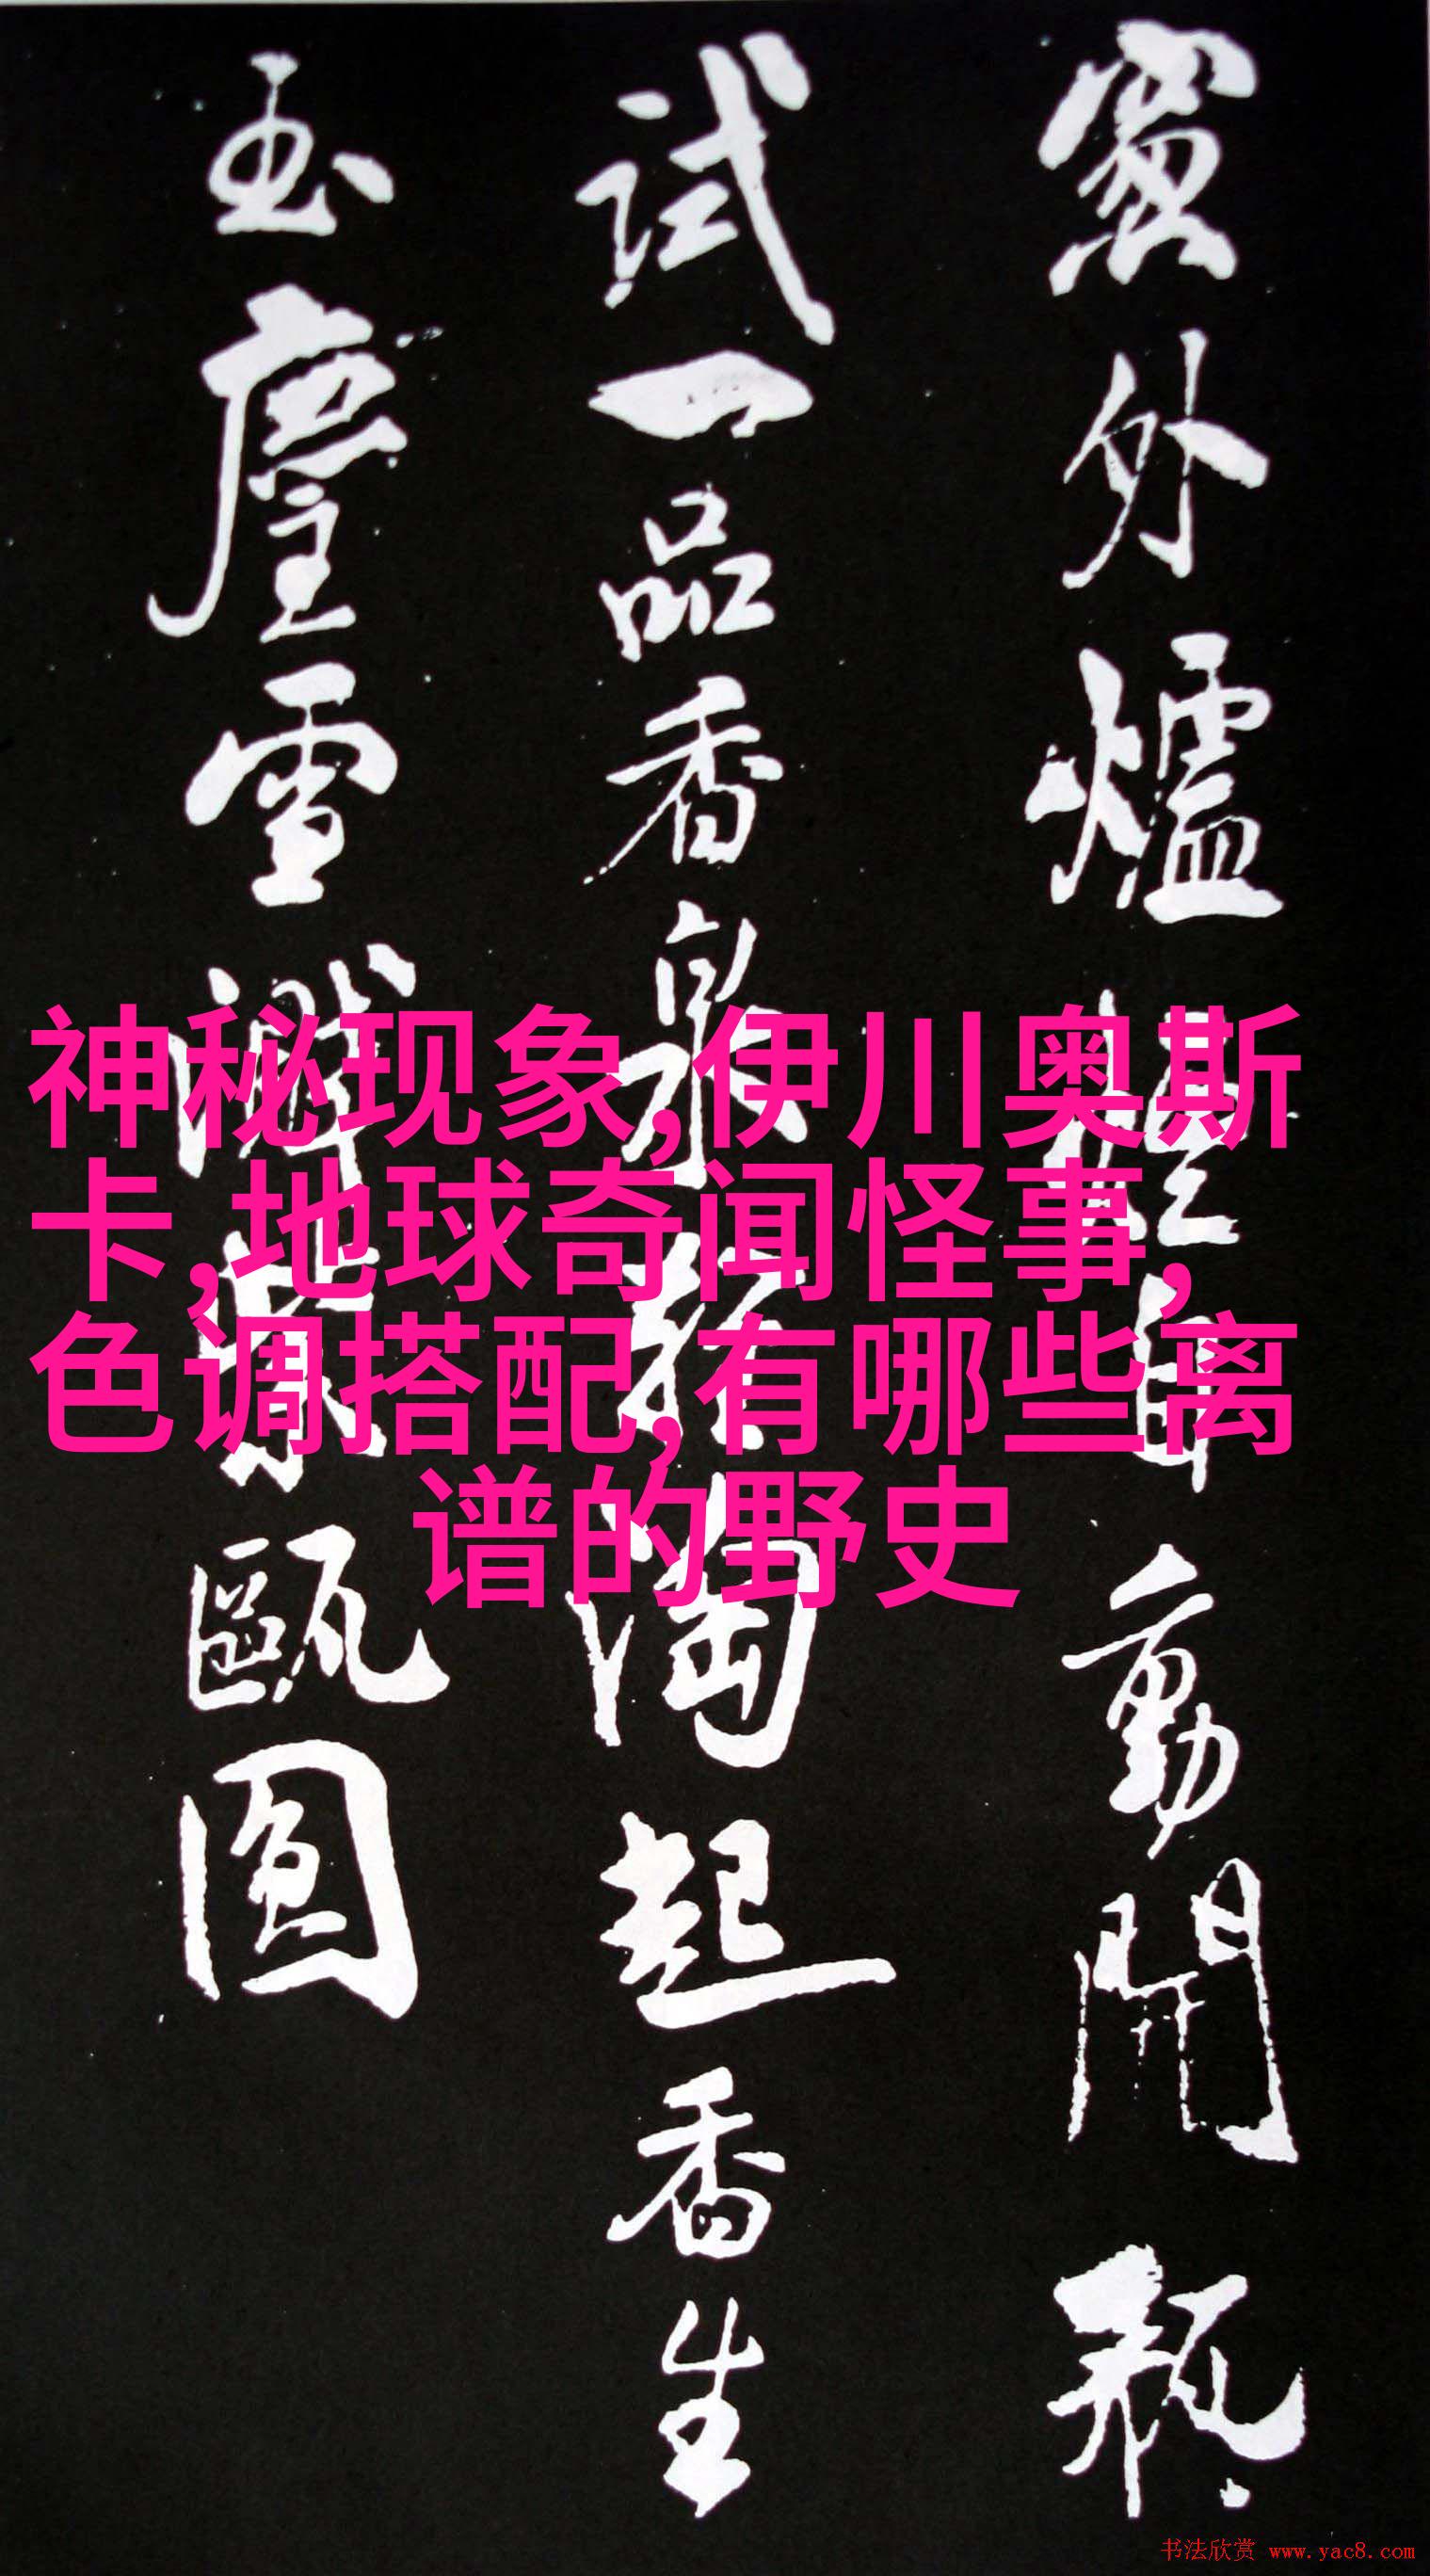 窗外爐煙自動開瓶
試一品香泉輕淘起香生
玉塵雪濺紫甌圓
神秘现象,伊川奥斯
卡,地球奇闻怪事,
色调搭配,有哪些离
谱的野史
书法欣赏 www.yac8.com